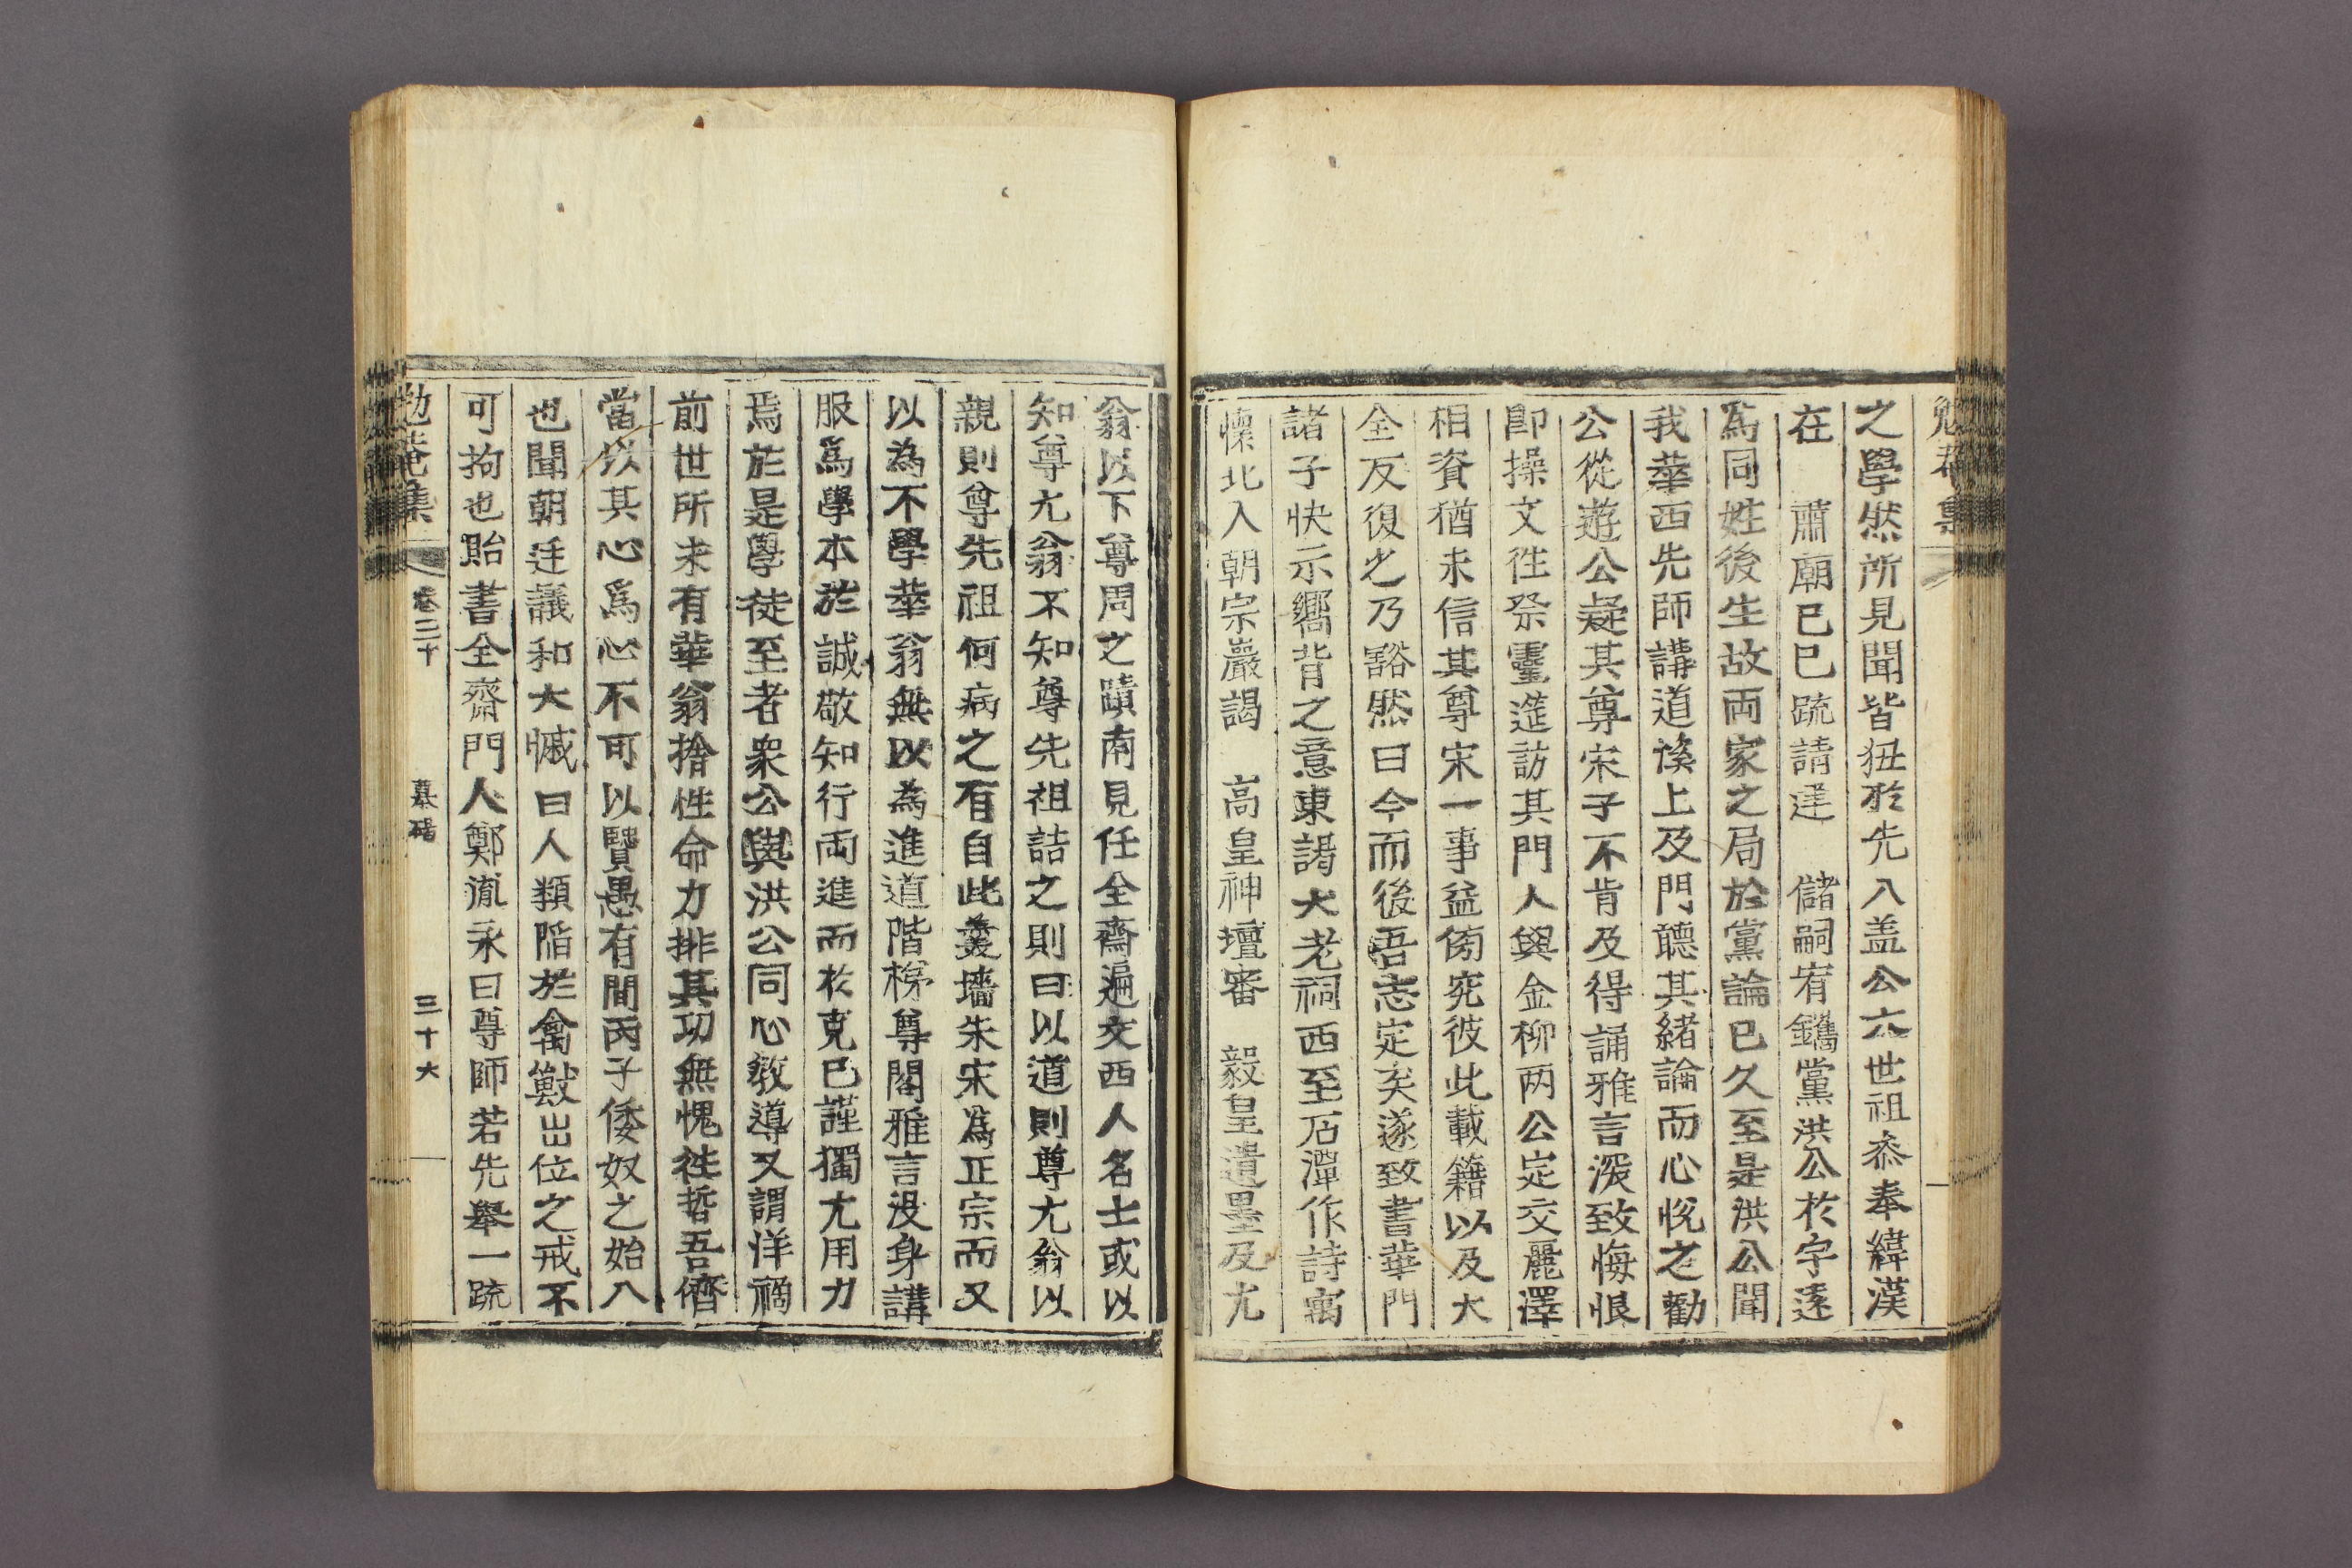 勉菴集
之學然所見聞皆狃於先入盖公六世祖忝奉緯漢
在 肅廟己巳疏請建 儲嗣宥鑴黨洪公於宇遠
爲同姓後生故两家之局於黨論已久至是洪公聞
我華西先師講道溪上及門聽其緖論而心悅之勸
公從遊公疑其尊宋子不肯及得誦雅言深致悔恨
卽操文徃祭靈筵訪其門人與金柳两公定交麗澤
相資猶未信其尊宋一事益傍究彼此載籍以及大
全反復之乃豁然曰今而後吾志定矣遂致書華門
諸子快示嚮背之意東謁大老祠西至石潭作詩寓
懷北入朝宗巖謁 高皇神壇審 毅皇遺墨及尤
翁以下尊周之蹟南見任全齋遍交西人名士或以
知尊尤翁不知尊先祖詰之則曰以道則尊尤翁以
親則尊先祖何病之有自此羹墻朱宋爲正宗而又
以為不學華翁無以為進道階梯尊閣雅言沒身講
服爲學本於誠敬知行两進而於克己謹獨尤用力
焉於是學徒至者衆公與洪公同心敎導又謂洋禍
前世所未有華翁捨性命力排其功無愧徃哲吾儕
當以其心爲心不可以賢愚有間丙子倭奴之始入
也聞朝廷議和大慽曰人類陷於禽獸出位之戒不
可拘也貽書全齋門人鄭胤永曰尊師若先擧一疏
勉菴集 卷三十 墓碣 三十六